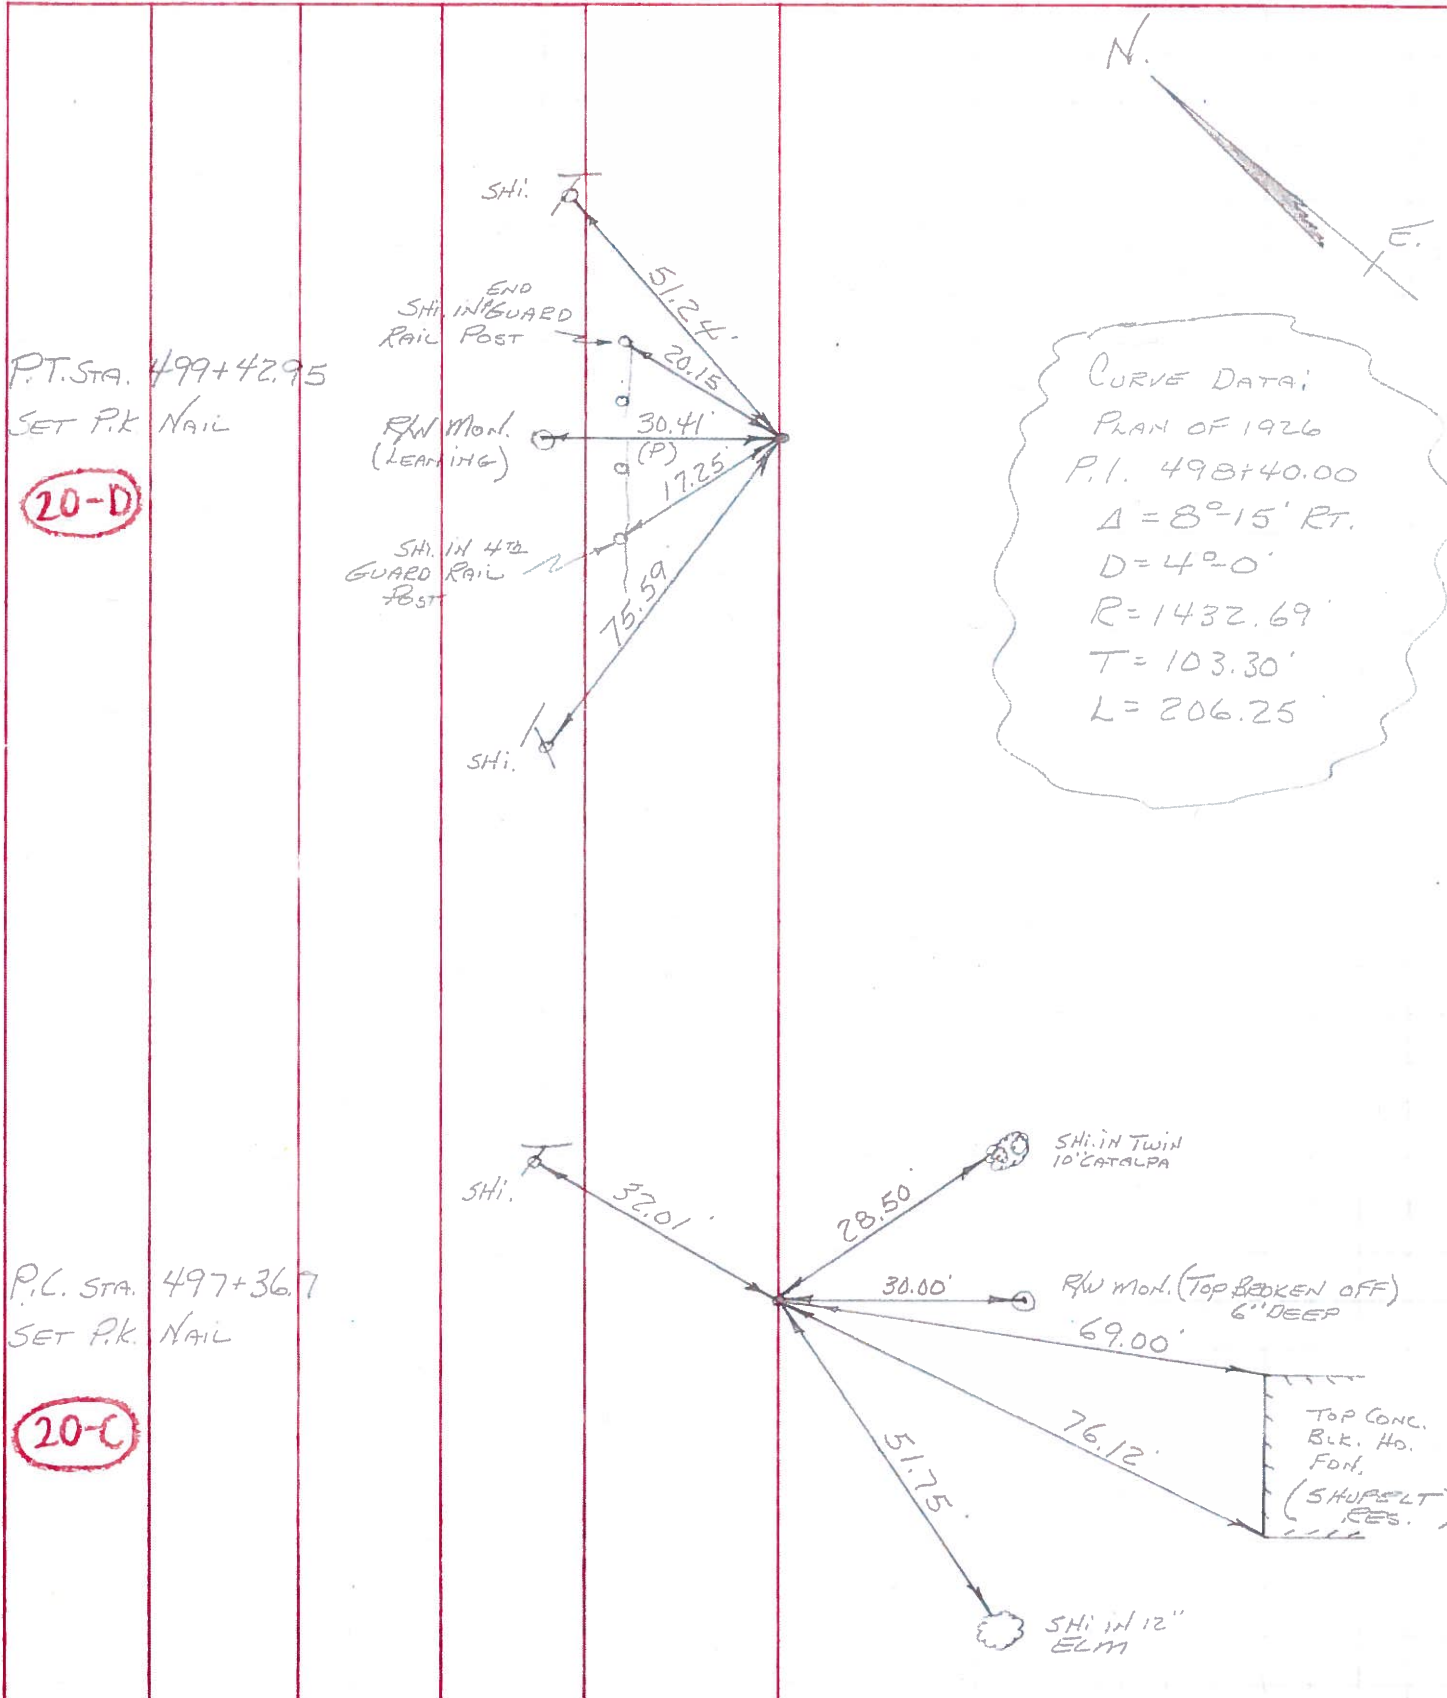 N.
E.
SHi.
51.24'
END
SHi. IN GUARD
RAIL POST
20.15
P.T. STA. 499+42.95
SET P.K NAIL
R/W MON.
(LEANING)
30.41'
(P)
17.25'
20-D
SHi. IN 4TH
GUARD RAIL
POST
75.59'
SHi.
CURVE DATA:
PLAN OF 1926
P.I. 498+40.00
Δ = 8°-15' RT.
D = 4°-0'
R = 1432.69'
T = 103.30'
L = 206.25'
SHi.
32.01'
28.50'
SHi. IN TWIN
10" CATALPA
P.C. STA. 497+36.7
SET P.K. NAIL
30.00'
R/W MON. (TOP BROKEN OFF)
6" DEEP
69.00'
20-C
76.12'
51.75'
TOP CONC.
BLK. HO.
FDN.
(SHUPELT
RES.)
SHi IN 12"
ELM